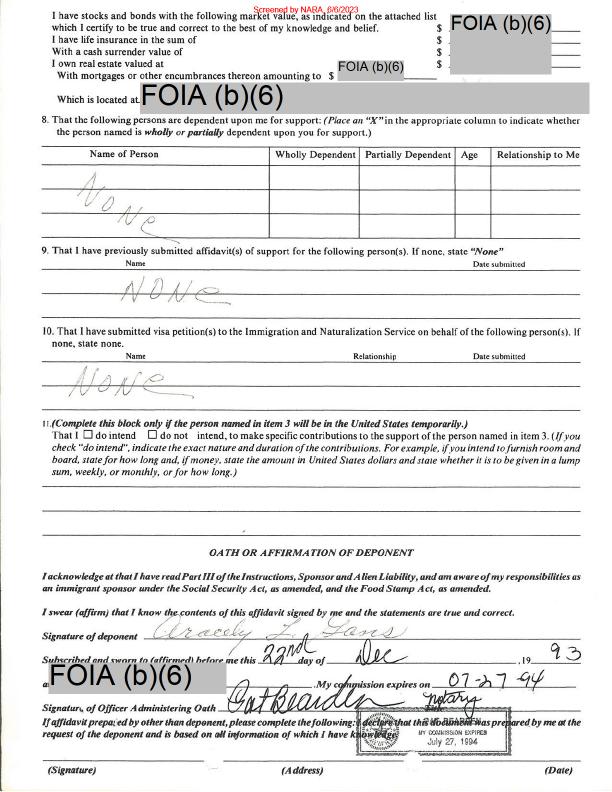 Screened by NARA, 6/6/2023
I have stocks and bonds with the following market value, as indicated on the attached list
which I certify to be true and correct to the best of my knowledge and belief. $ FOIA (b)(6)
I have life insurance in the sum of $
With a cash surrender value of $
I own real estate valued at $
With mortgages or other encumbrances thereon amounting to $ FOIA (b)(6)
Which is located at FOIA (b)(6)
8. That the following persons are dependent upon me for support: (Place an "X" in the appropriate column to indicate whether
the person named is wholly or partially dependent upon you for support.)
Name of Person Wholly Dependent Partially Dependent Age Relationship to Me
None
9. That I have previously submitted affidavit(s) of support for the following person(s). If none, state "None"
Name Date submitted
NONE
10. That I have submitted visa petition(s) to the Immigration and Naturalization Service on behalf of the following person(s). If
none, state none.
Name Relationship Date submitted
NONE
11.(Complete this block only if the person named in item 3 will be in the United States temporarily.)
That I ☐ do intend ☐ do not intend, to make specific contributions to the support of the person named in item 3. (If you
check "do intend", indicate the exact nature and duration of the contributions. For example, if you intend to furnish room and
board, state for how long and, if money, state the amount in United States dollars and state whether it is to be given in a lump
sum, weekly, or monthly, or for how long.)
OATH OR AFFIRMATION OF DEPONENT
I acknowledge at that I have read Part III of the Instructions, Sponsor and Alien Liability, and am aware of my responsibilities as
an immigrant sponsor under the Social Security Act, as amended, and the Food Stamp Act, as amended.
I swear (affirm) that I know the contents of this affidavit signed by me and the statements are true and correct.
Signature of deponent Aracely L. Gans
Subscribed and sworn to (affirmed) before me this 22nd day of Dec ,19 93
FOIA (b)(6) .My commission expires on 07-27-94
Signature of Officer Administering Oath Pat Bearden notary
If affidavit prepared by other than deponent, please complete the following: I declare that this document was prepared by me at the
request of the deponent and is based on all information of which I have knowledge.
BEARDEN
MY COMMISSION EXPIRES
July 27, 1994
(Signature) (Address) (Date)